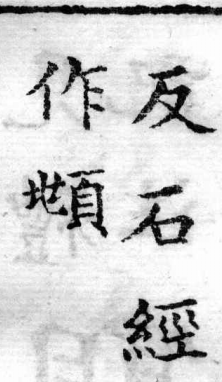 反石經
作